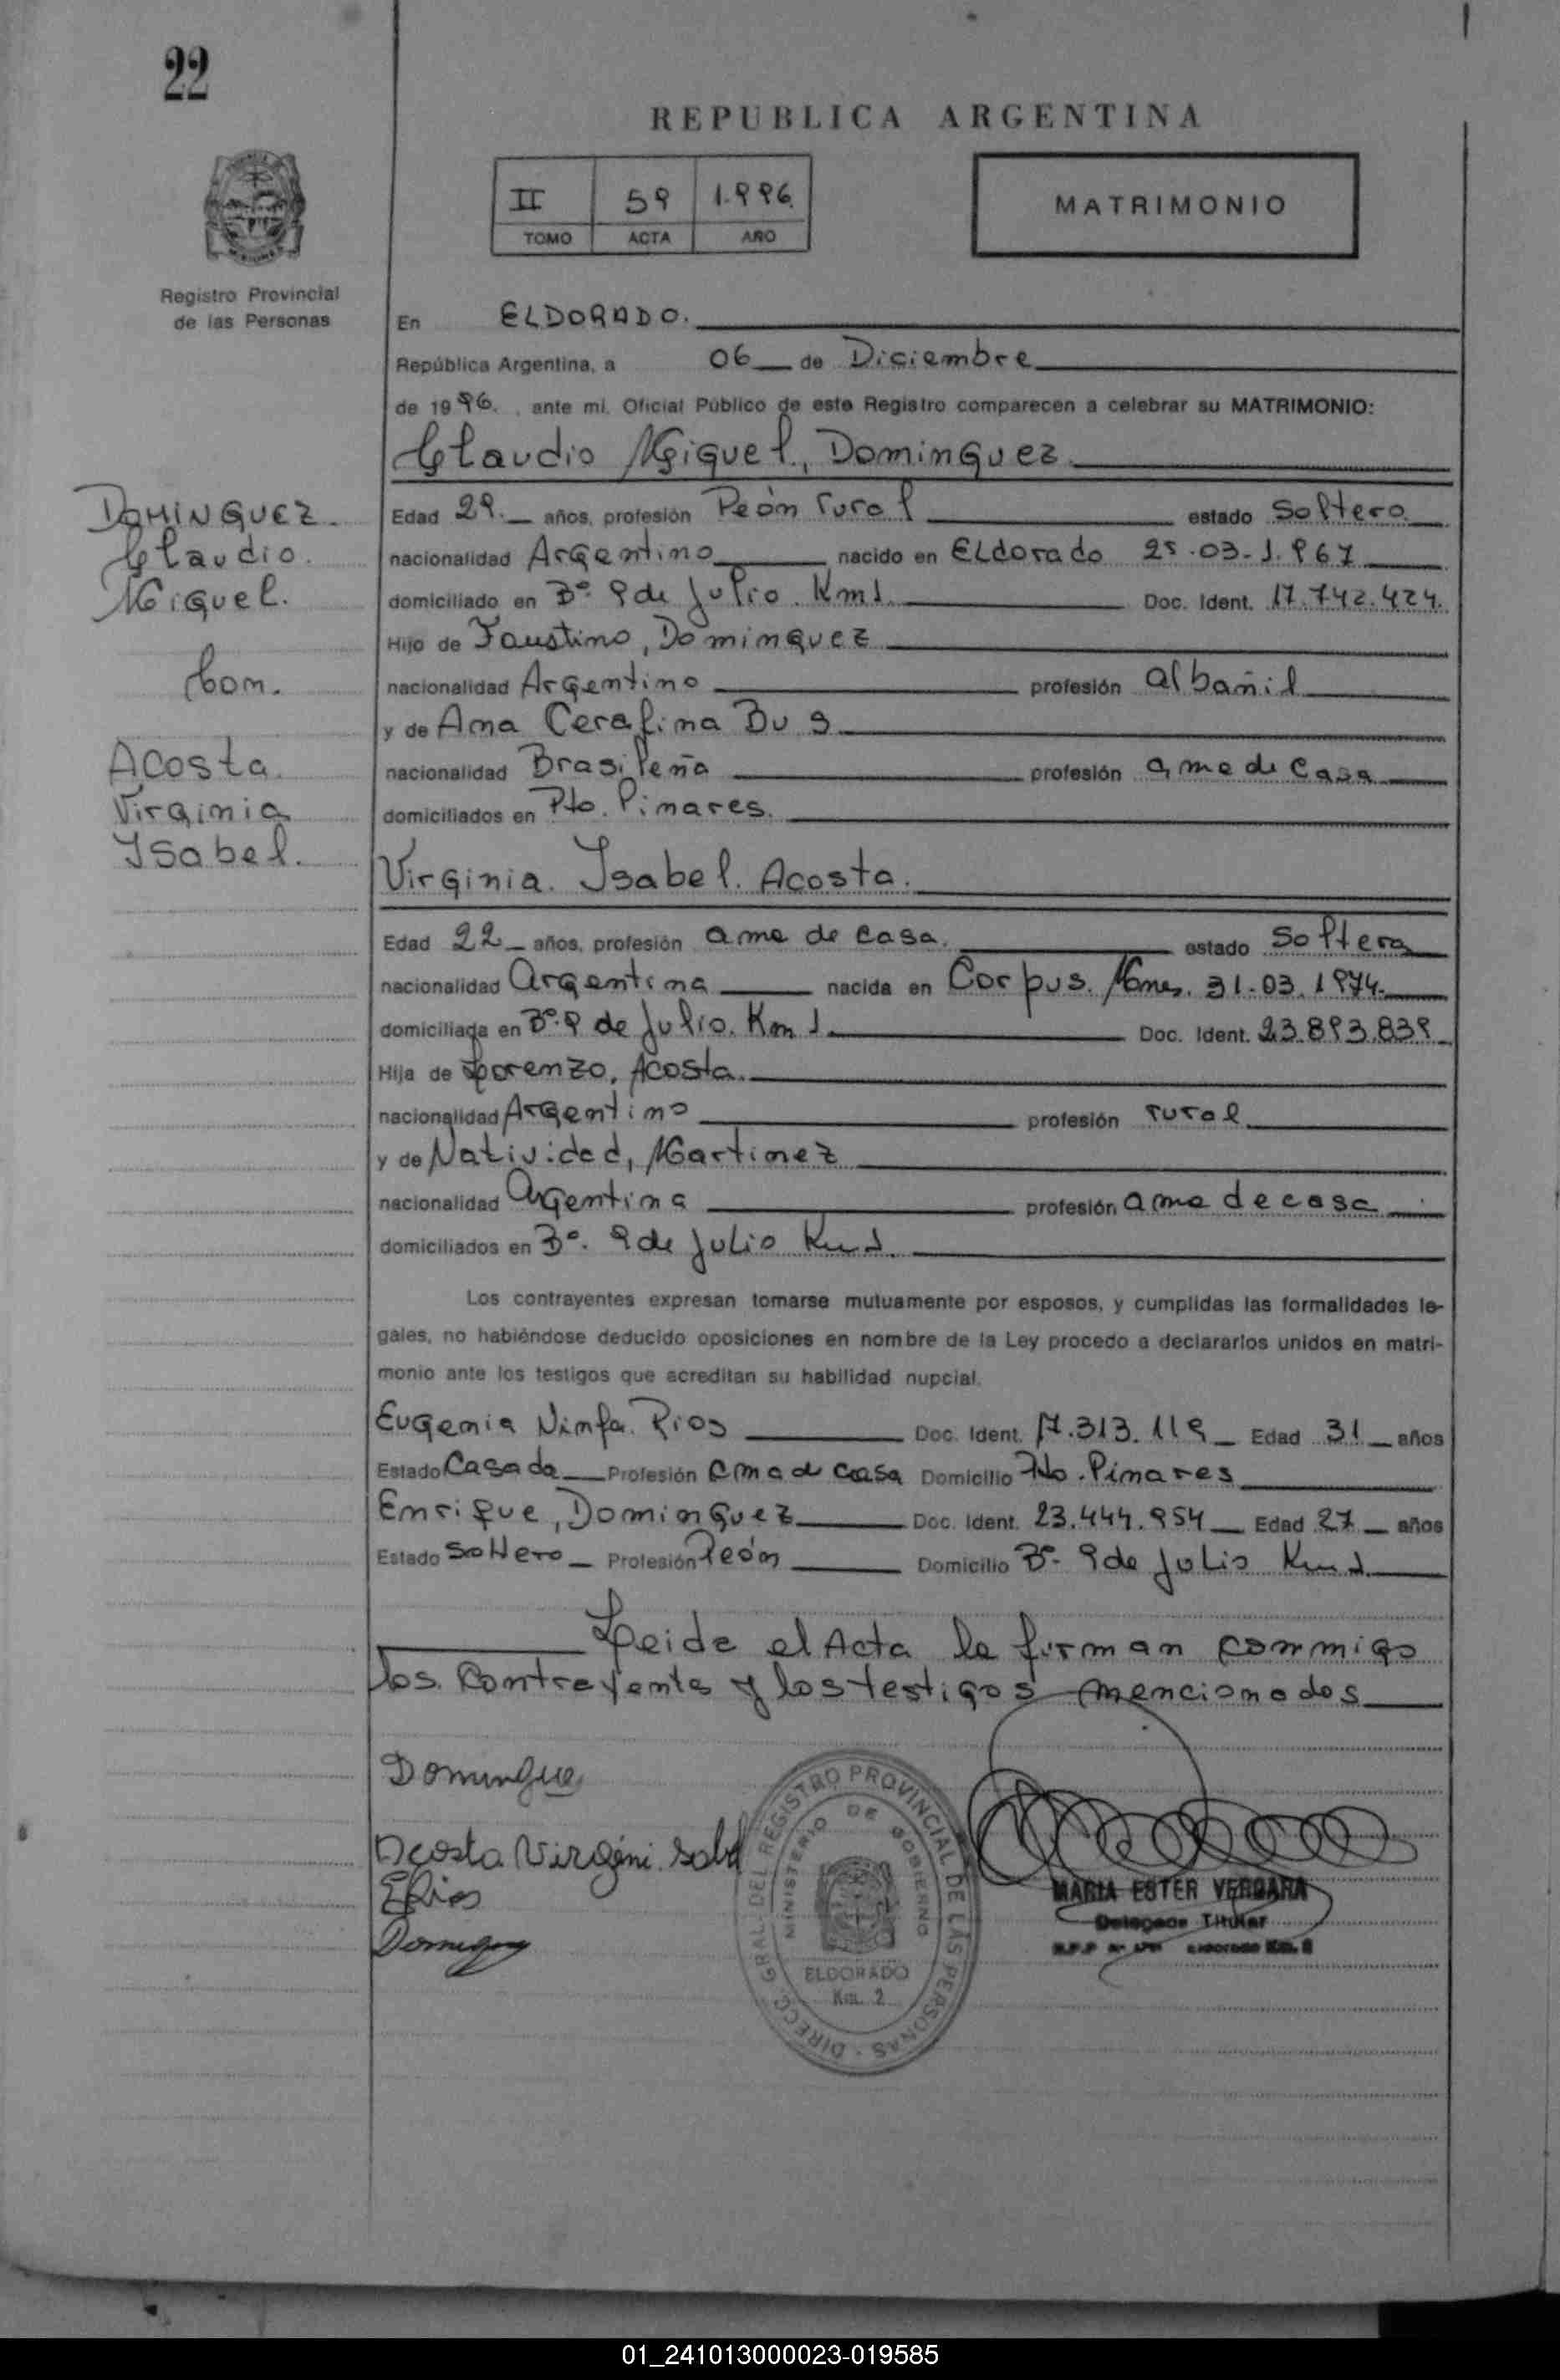 22
REPUBLICA ARGENTINA
II 59 1.996.
TOMO ACTA AÑO
MATRIMONIO
Registro Provincial
de las Personas
En ELDORADO.
República Argentina, a 06 de Diciembre
de 1996. , ante mi, Oficial Público de este Registro comparecen a celebrar su MATRIMONIO:
Claudio Miguel, Dominguez
DOMINGUEZ.
Claudio.
Miguel.
Con.
Acosta.
Virginia
Isabel.
Edad 29. años, profesión Peón rural estado Soltero
nacionalidad Argentino nacido en ELdorado 25.03-1.967
domiciliado en B° 9 de Julio. Km 1. Doc. Ident. 17.742.424.
Hijo de Faustino, Dominguez
nacionalidad Argentino profesión albañil
y de Ana Cerafina Bus
nacionalidad Brasileña profesión ama de casa
domiciliados en Pto. Pinares.
Virginia. Isabel. Acosta.
Edad 22 años, profesión ama de casa. estado Soltera
nacionalidad argentina nacida en Corpus. Mnes. 31.03.1974.
domiciliada en B°. 9 de Julio. Km 1. Doc. Ident. 23.893.839
Hija de Lorenzo, Acosta.
nacionalidad Argentino profesión rural
y de Natividad, Martinez
nacionalidad Argentina profesión ama de casa
domiciliados en B°. 9 de Julio Km 1.
Los contrayentes expresan tomarse mutuamente por esposos, y cumplidas las formalidades le-
gales, no habiéndose deducido oposiciones en nombre de la Ley procedo a declararlos unidos en matri-
monio ante los testigos que acreditan su habilidad nupcial.
Eugenia Ninfa. Rios Doc. Ident. 17.313.119 Edad 31 años
Estado Casada Profesión ama de casa Domicilio Pto. Pinares
Enrique, Dominguez Doc. Ident. 23.444.954 Edad 27 años
Estado soltero Profesión Peón Domicilio B° 9 de Julio Km 1.
Leida el Acta la firman conmigo
los. Contrayentes y los testigos mencionados
Domingue
Acosta Virgini. sabel
ERios
DIRECC. GRAL. DEL REGISTRO PROVINCIAL DE LAS PERSONAS
MINISTERIO DE GOBIERNO
ELDORADO
Km. 2
MARIA ESTER VERGARA
Delegada Titular
01_241013000023-019585